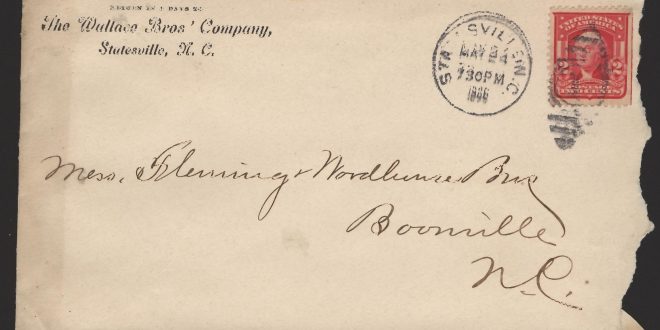 RETURN IN 5 DAYS TO
The Wallace Bros' Company,
Statesville, N. C.
STATESVILLE, N.C.
MAY 24
730PM
1906
UNITED STATES
OF AMERICA
2 2
TWO CENTS
Mess. Fleming & Woodhouse Bros
Boonville
N.C.